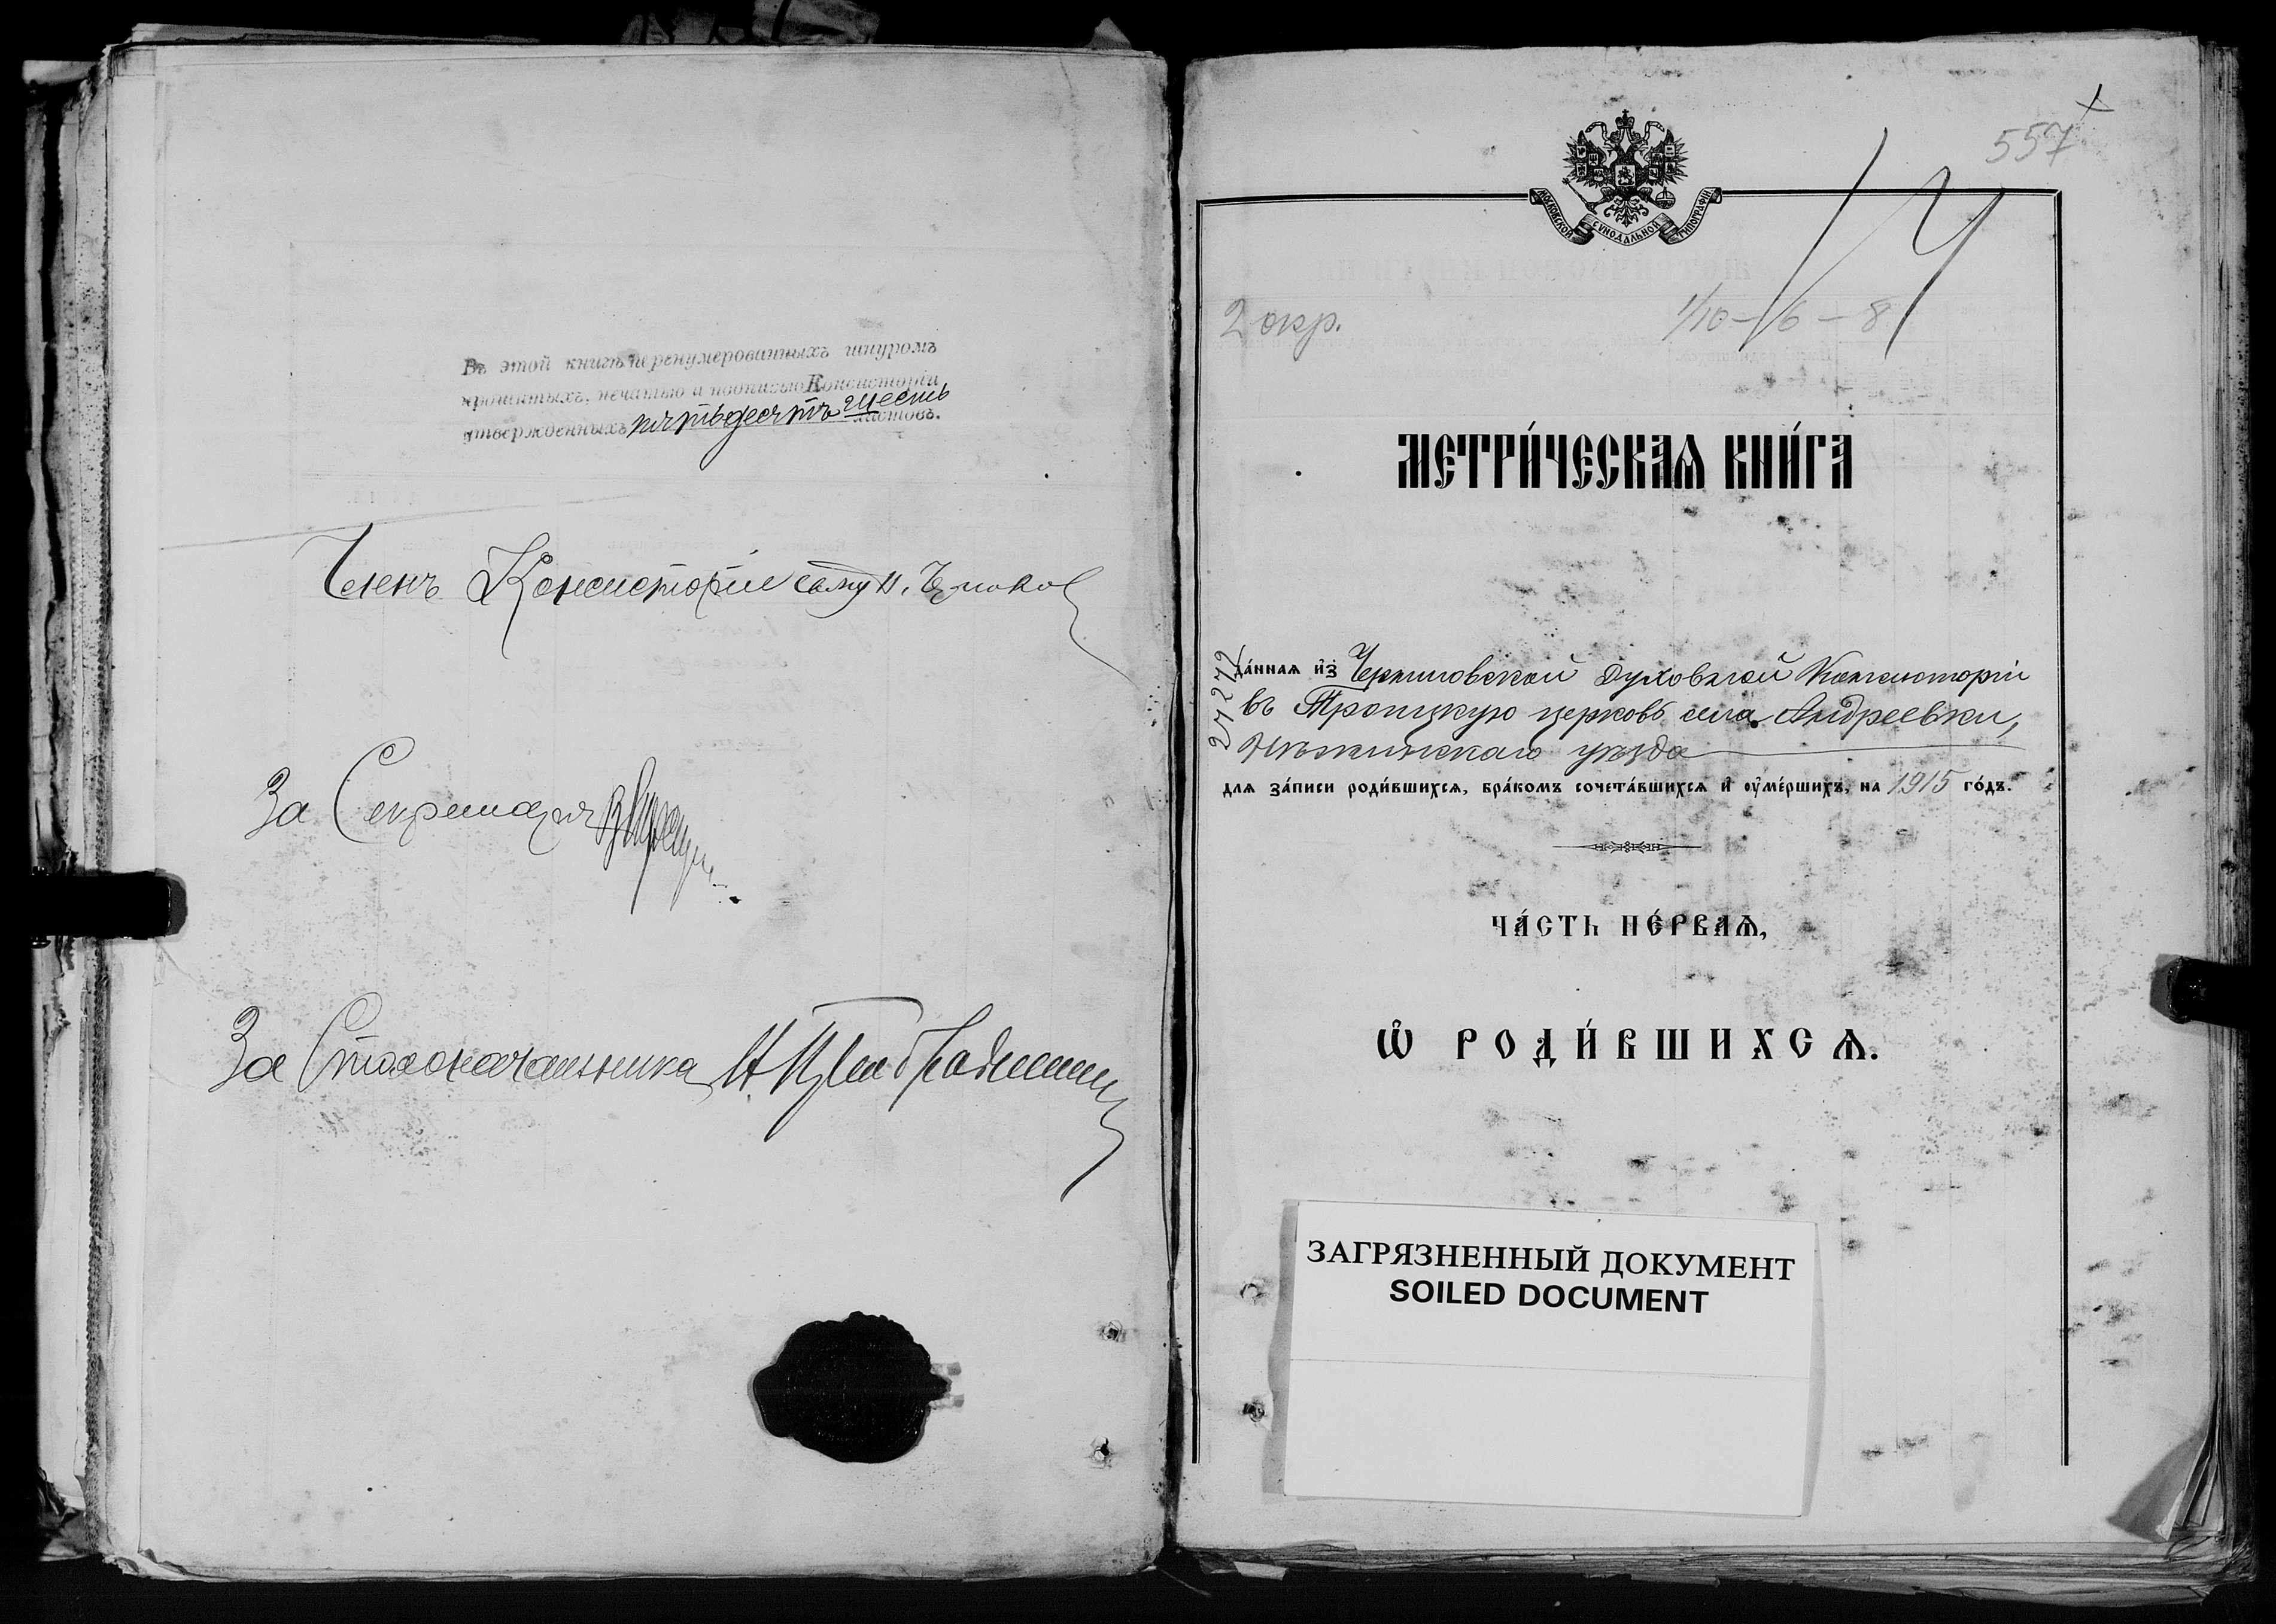 Въ этой книгѣ перенумерованныхъ шнуромъ
прошитыхъ, печатью и подписью Консисторіи
утвержденныхъ пятьдесятъ шесть листовъ.
Членъ Консисторіи
За Секретаря
За Столоначальника
557
МОСКОВСКОЙ СѴНОДАЛЬНОЙ ТИПОГРАФІИ
14
2 окр.
1/10 – 6 – 8
МЕТРИ́ЧЕСКАѦ КНИ́ГА
да́ннаѧ и҆з̾ Черниговской Духовной Консисторіи
въ Троицкую церковь села Андреевки,
Нѣжинскаго уѣзда
для за́писи роди́вшихсѧ, бра́комъ сочета́вшихсѧ и҆ ѹ҆ме́ршихъ, на 1915 го́дъ.
ЧА́СТЬ ПЕ́РВАѦ,
Ѽ РОДИ́ВШИХСѦ.
ЗАГРЯЗНЕННЫЙ ДОКУМЕНТ
SOILED DOCUMENT